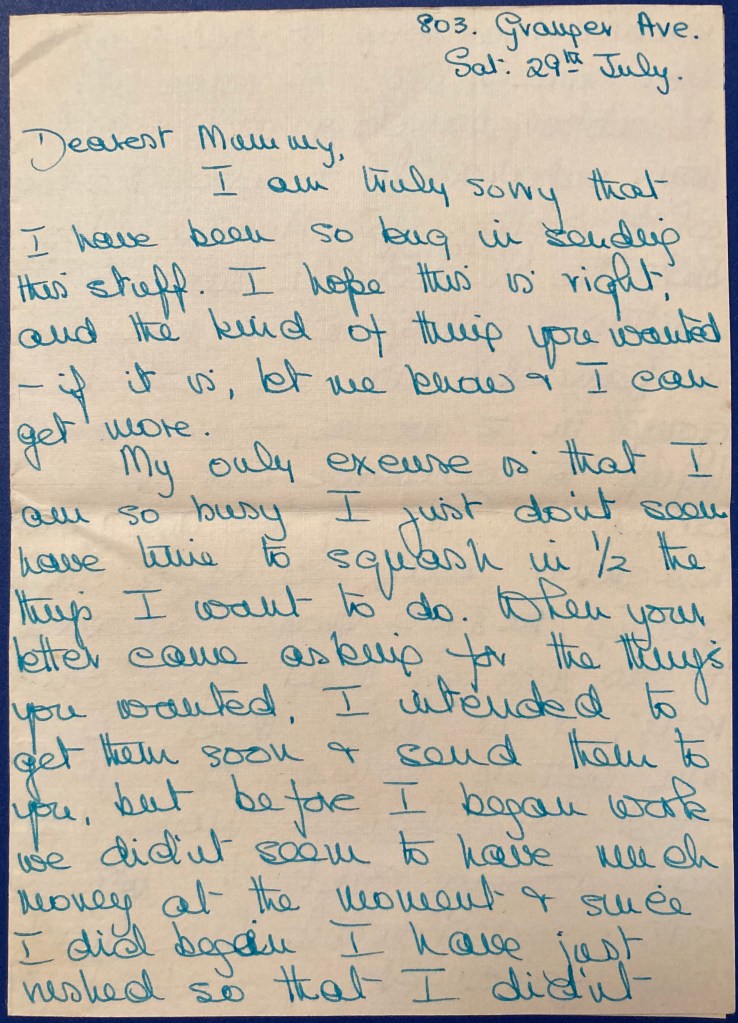 803. Grauper Ave.
Sat: 29th July.
Dearest Mummy,
I am truly sorry that
I have been so long in sending
this stuff. I hope this is right,
and the kind of thing you wanted
- if it is, let me know & I can
get more.
My only excuse is that I
am so busy I just don't seem
have time to squash in 1/2 the
things I want to do. When your
letter came asking for the things
you wanted, I intended to
get them soon & send them to
you, but before I began work
we didn't seem to have much
money at the moment & since
I did began I have just
rushed so that I didn't